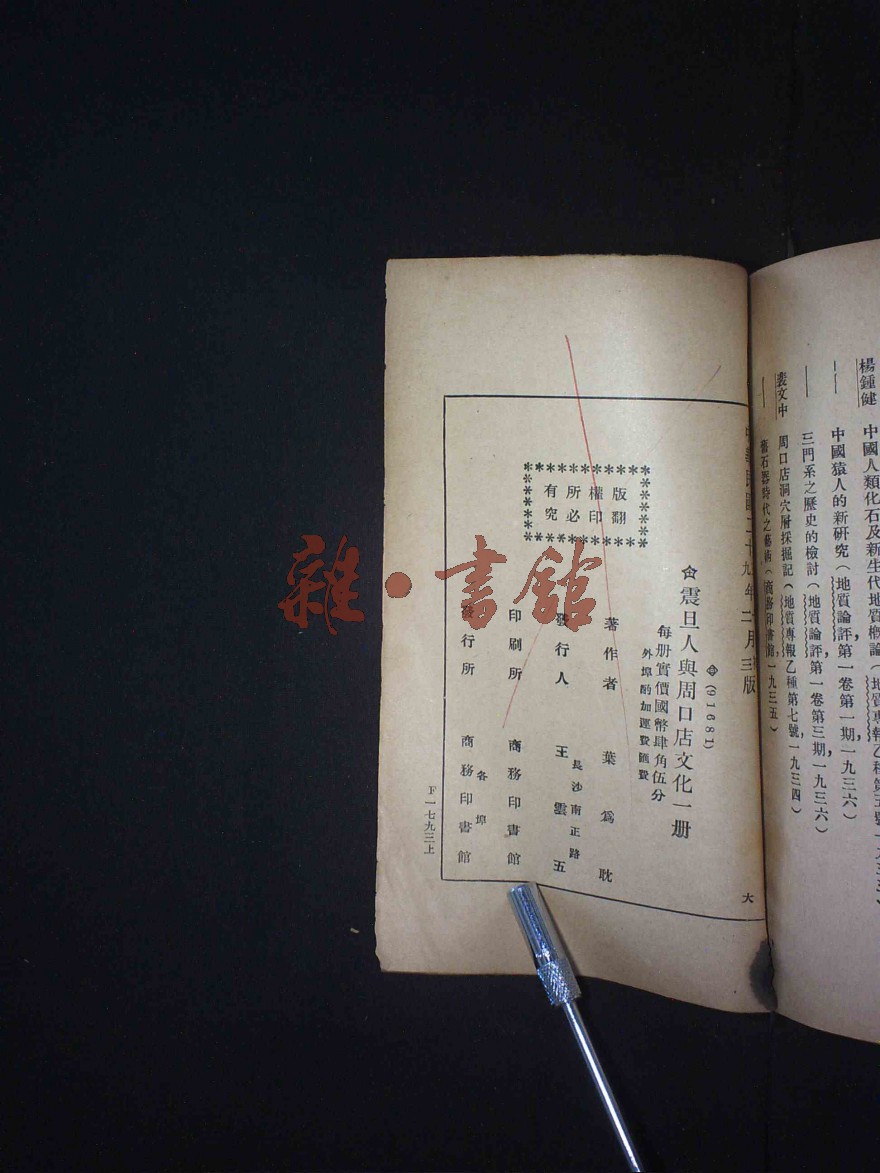 楊鍾健
中國人類化石及新生代地質概論(地質專報乙種第五號一九三三)
中國猿人的新研究(地質論評第一卷第一期一九三六)
三門系之歷史的檢討(地質論評第一卷第三期一九三六)
裴文中
周口店洞穴層採掘記(地質專報乙種第七號一九三四)
舊石器時代之藝術(商務印書館,一九三五)
中華民國二十九年二月三版
大
(91681)
震旦人與周口店文化一册
每册實價國幣肆角伍分
外埠酌加運費匯費
版權所有
翻印必究
著作者 葉爲耽
長沙南正路
發行人 王雲五
印刷所 商務印書館
各埠
發行所 商務印書館
下一七九三上
雜·書館